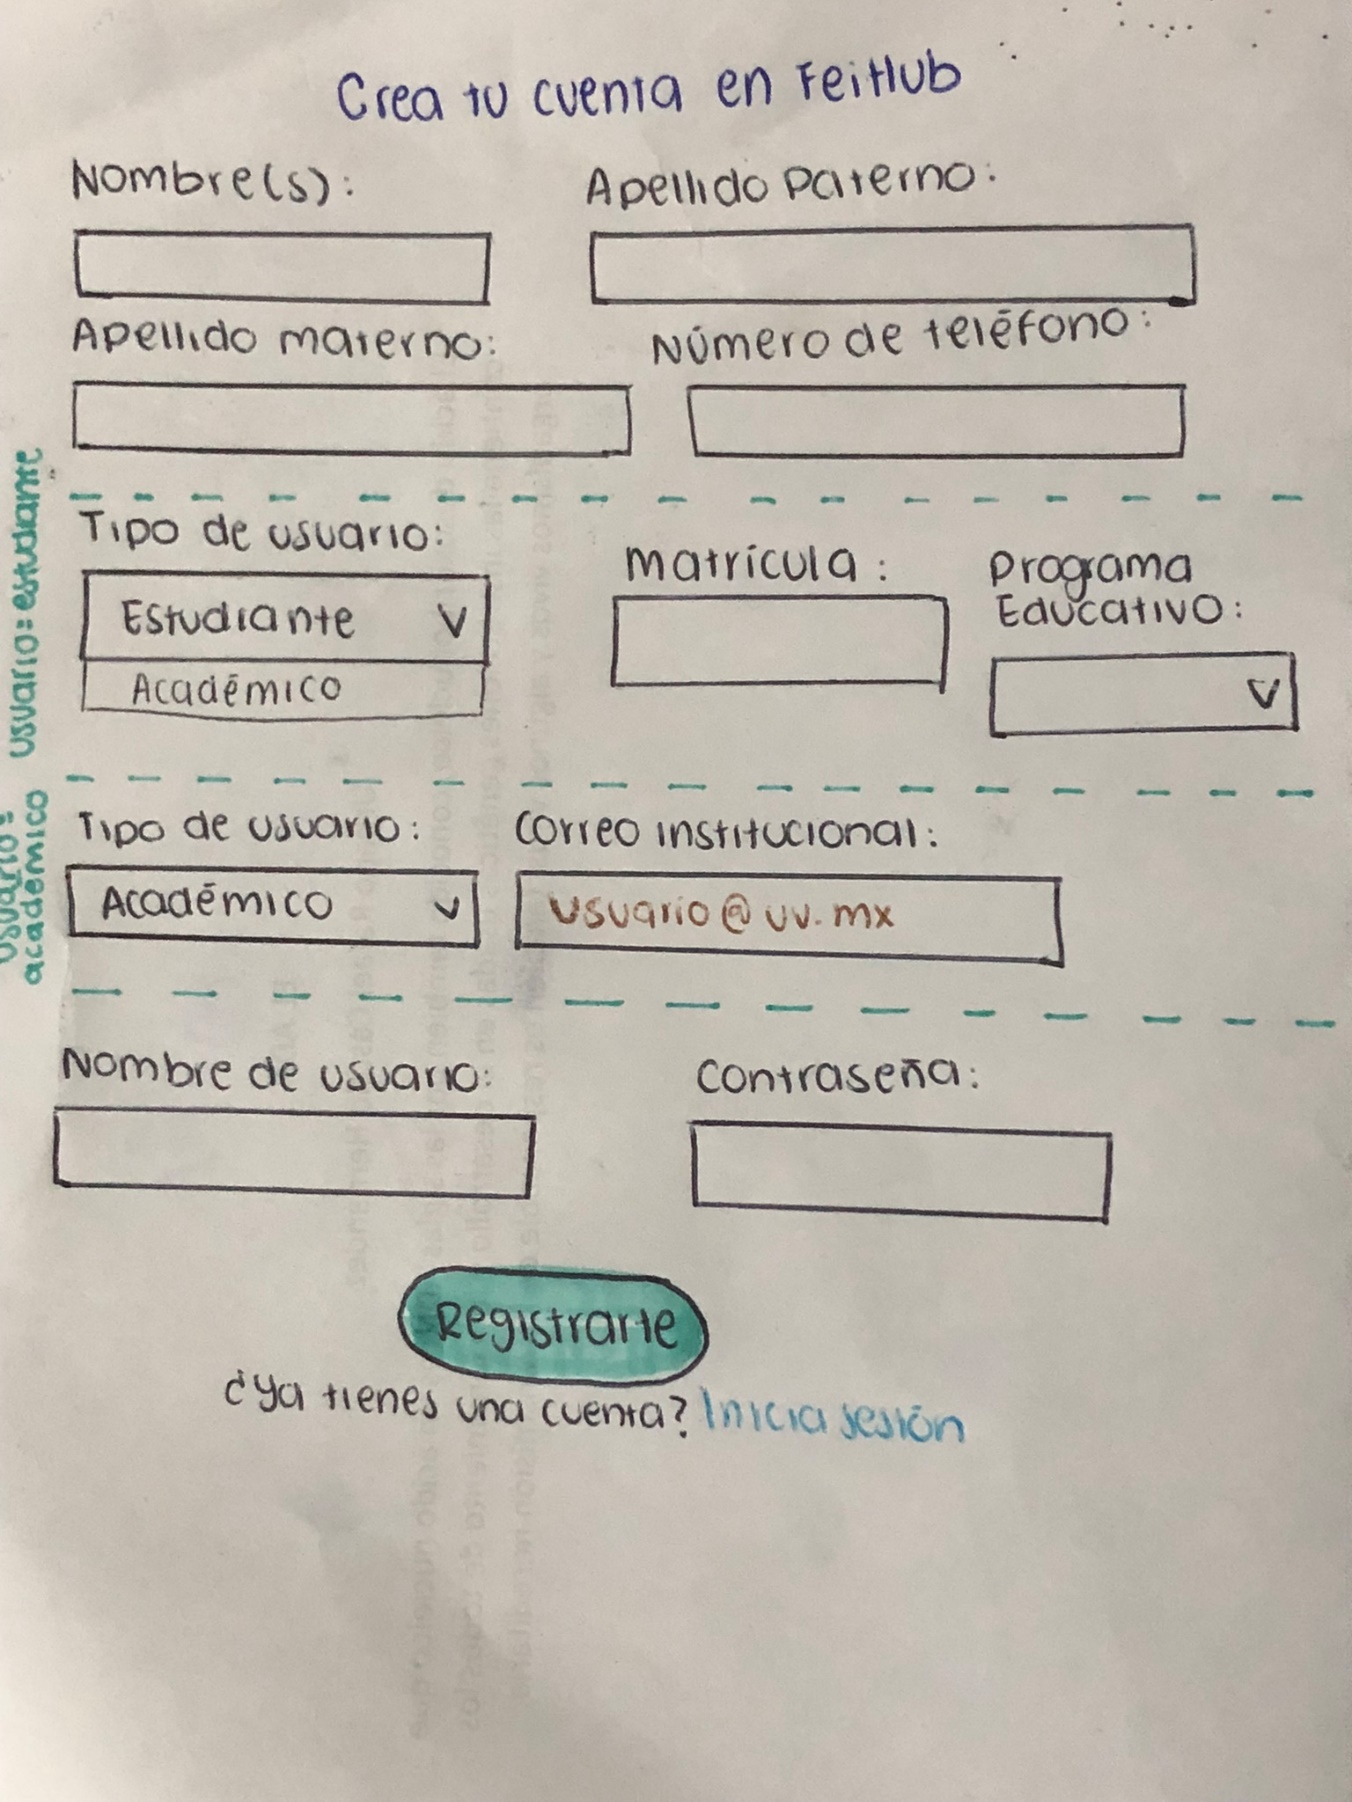 Crea tu cuenta en FeitHub
Nombre(s):
Apellido Paterno:
Apellido materno:
Número de teléfono:
usuario: estudante
Tipo de usuario:
Estudiante V
Académico
matrícula:
Programa
Educativo:
V
usuario:
académico
Tipo de usuario:
Académico V
Correo institucional:
usuario@uv.mx
Nombre de usuario:
Contraseña:
Registrarte
¿Ya tienes una cuenta? Inicia sesión